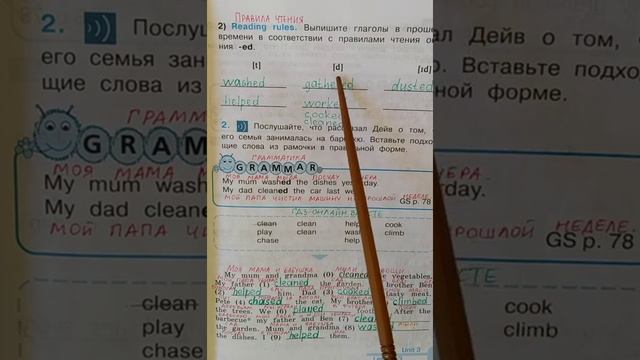 ПРАВИЛА ЧТЕНИЯ
2) Reading rules. Выпишите глаголы в проше
времени в соответствии с правилами чтения о
ния -ed.
[t] [d] [ɪd]
washed gathered dusted
helped worked
cooked
cleaned
2. Послушайте, что рассказал Дейв о том,
его семья занималась на барбекю. Вставьте подхо
щие слова из рамочки в правильной форме.
ГРАММАТИКА
GRAMMAR
МОЯ МАМА МЫЛА ПОСУДУ ВЧЕРА.
My mum washed the dishes yesterday.
My dad cleaned the car last week.
МОЙ ПАПА ЧИСТИЛ МАШИНУ НА ПРОШЛОЙ НЕДЕЛЕ
GS p. 78
ГДЗ ОНЛАЙН ВМЕСТЕ
clean clean help cook
play clean wash climb
chase help
МОЯ МАМА И БАБУШКА МЫЛИ ОВОЩИ
My mum and grandma (0) cleaned the vegetables.
My father (1) cleaned the garden. brother Ben
(2) helped him. Dad (3) cooked tasty meat.
Pete (4) chased the cat. My brother climbed
the trees. We (6) played football. After the
barbecue my father and Ben (7) clean
the garden. Mum and grandma (8) was
the dishes. I (9) helped them.
Unit 3
2. зал Дейв о том,
его сем екю. Вставьте подхо
щие слова ной форме.
ГРАММА
GRAM
МОЯ МАМА
My mum wash rday.
My dad cleane
МОЙ ПАПА ПРОШЛОЙ НЕДЕЛЕ
GS p. 78
clean cook
play climb
chase